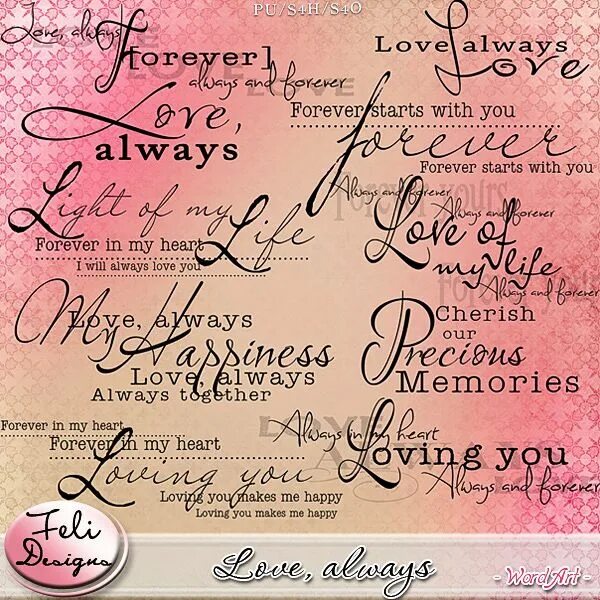 PU/S4H/S4O
Love, always
LOVE
forever]
LOVE
LOVE
always and forever
Love,
always
Love always
Love
Forever starts with you
forever
Forever starts with you
Light of my
Life
Forever in my heart
I will always love you
Always and forever
forever yours
Always and forever
Love of
my life
Always and forever
My
Love, always
Happiness
Love, always
Always together
Cherish
our
Precious
Memories
Forever in my heart
Forever in my heart
Loving you
Loving you makes me happy
Loving you makes me happy
LOVE
Always in my heart
Loving you
Always and forever
Feli
Designs
Love, always
- WordArt -